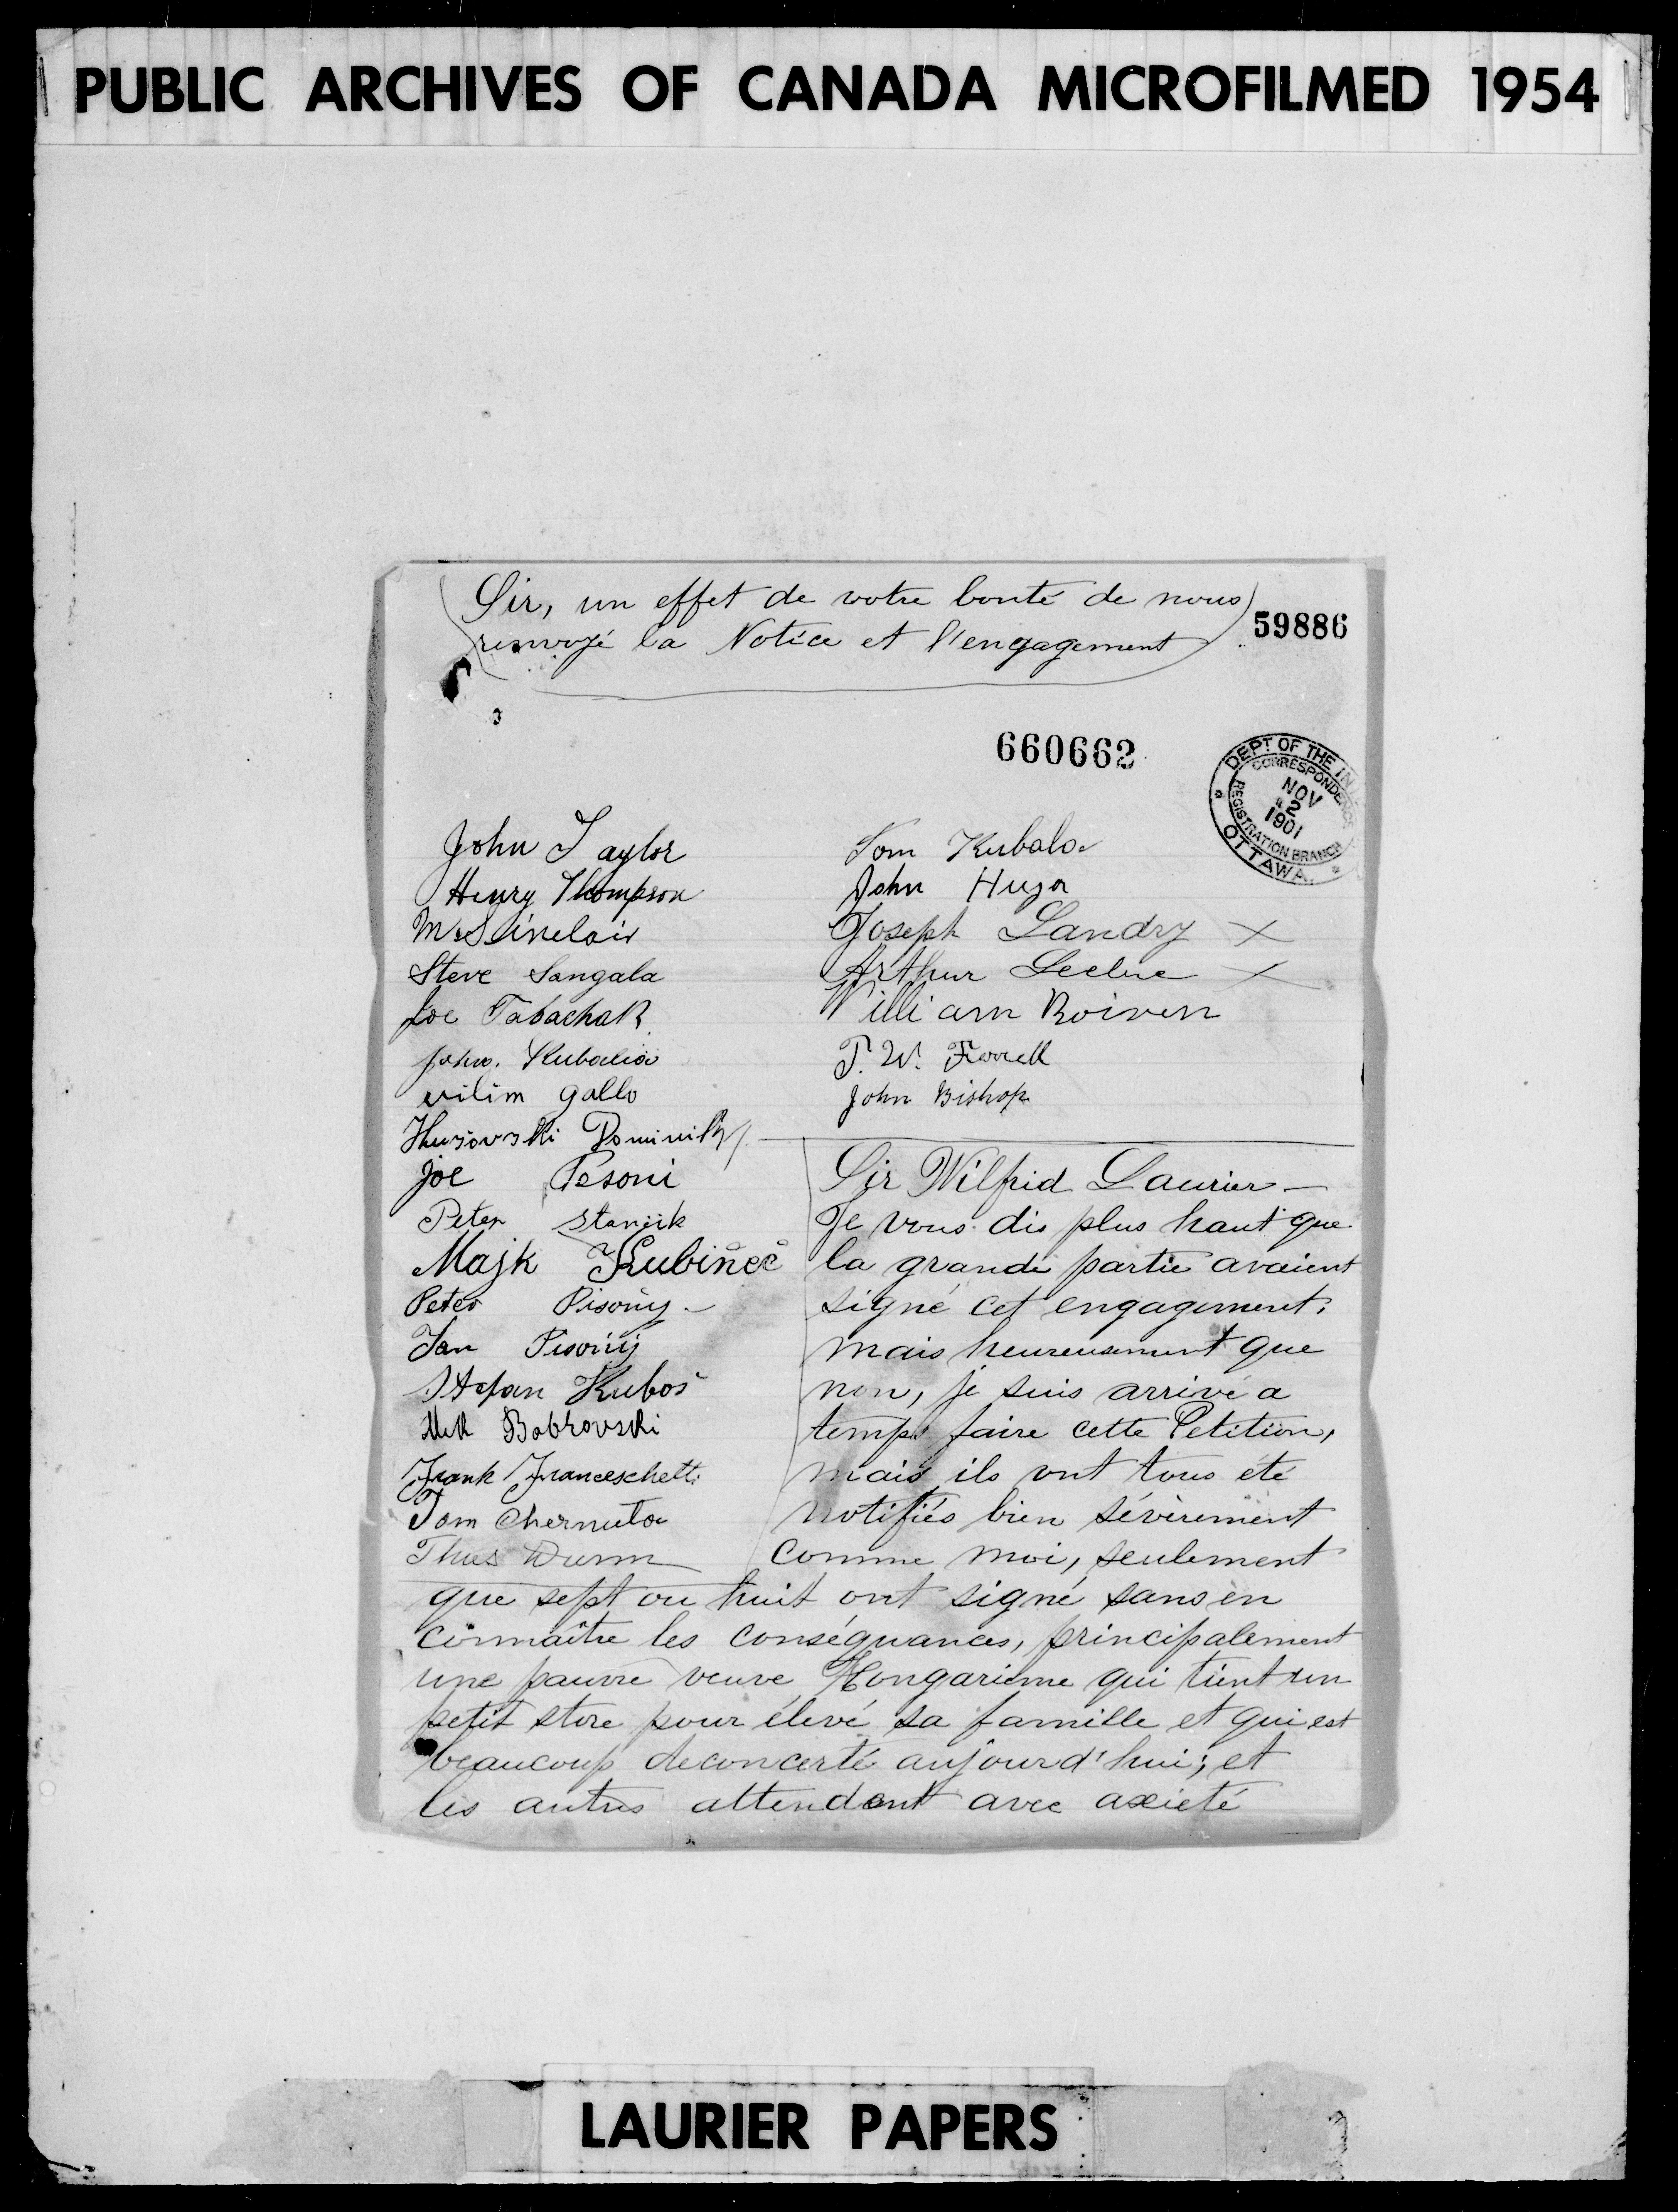 PUBLIC ARCHIVES OF CANADA MICROFILMED 1954
Sir, un effet de votre bonté de nous
renvoyé la Notice et l'engagement
59886
660662
DEPT OF THE IN
CORRESPONDENCE
NOV
12
1901
REGISTRATION BRANCH
OTTAWA.
John Taylor
Henry Thompson
Mr Sinclair
Steve Sangala
Joe Tabachak
John.
vilim gallo
Joe Pesoni
Peter
Majk Kubiňeč
Peter Pisoňy
Jan Pisoňy
Stefan Kuboš
Bobrovski
Frank Franceschetti
Tom Chernuta
Tom Kubala
John Huza
Joseph Landry X
Arthur Lecluc X
William Boiven
T. W. Farrell
John Bishop
Sir Wilfrid Laurier —
Je vous dis plus haut que
la grande partie avaient
signé cet engagement,
mais heureusement que
non, je suis arrivé a
temps faire cette Petition,
mais ils ont tous été
notifiés bien sévèrement
comme moi, seulement
que sept ou huit ont signé sans en
connaître les conséquances, principalement
une pauvre veuve Hongarienne qui tient un
petit store pour élevé sa famille et qui est
beaucoup deconcerté aujourd'hui; et
les autres attendent avec axieté
LAURIER PAPERS